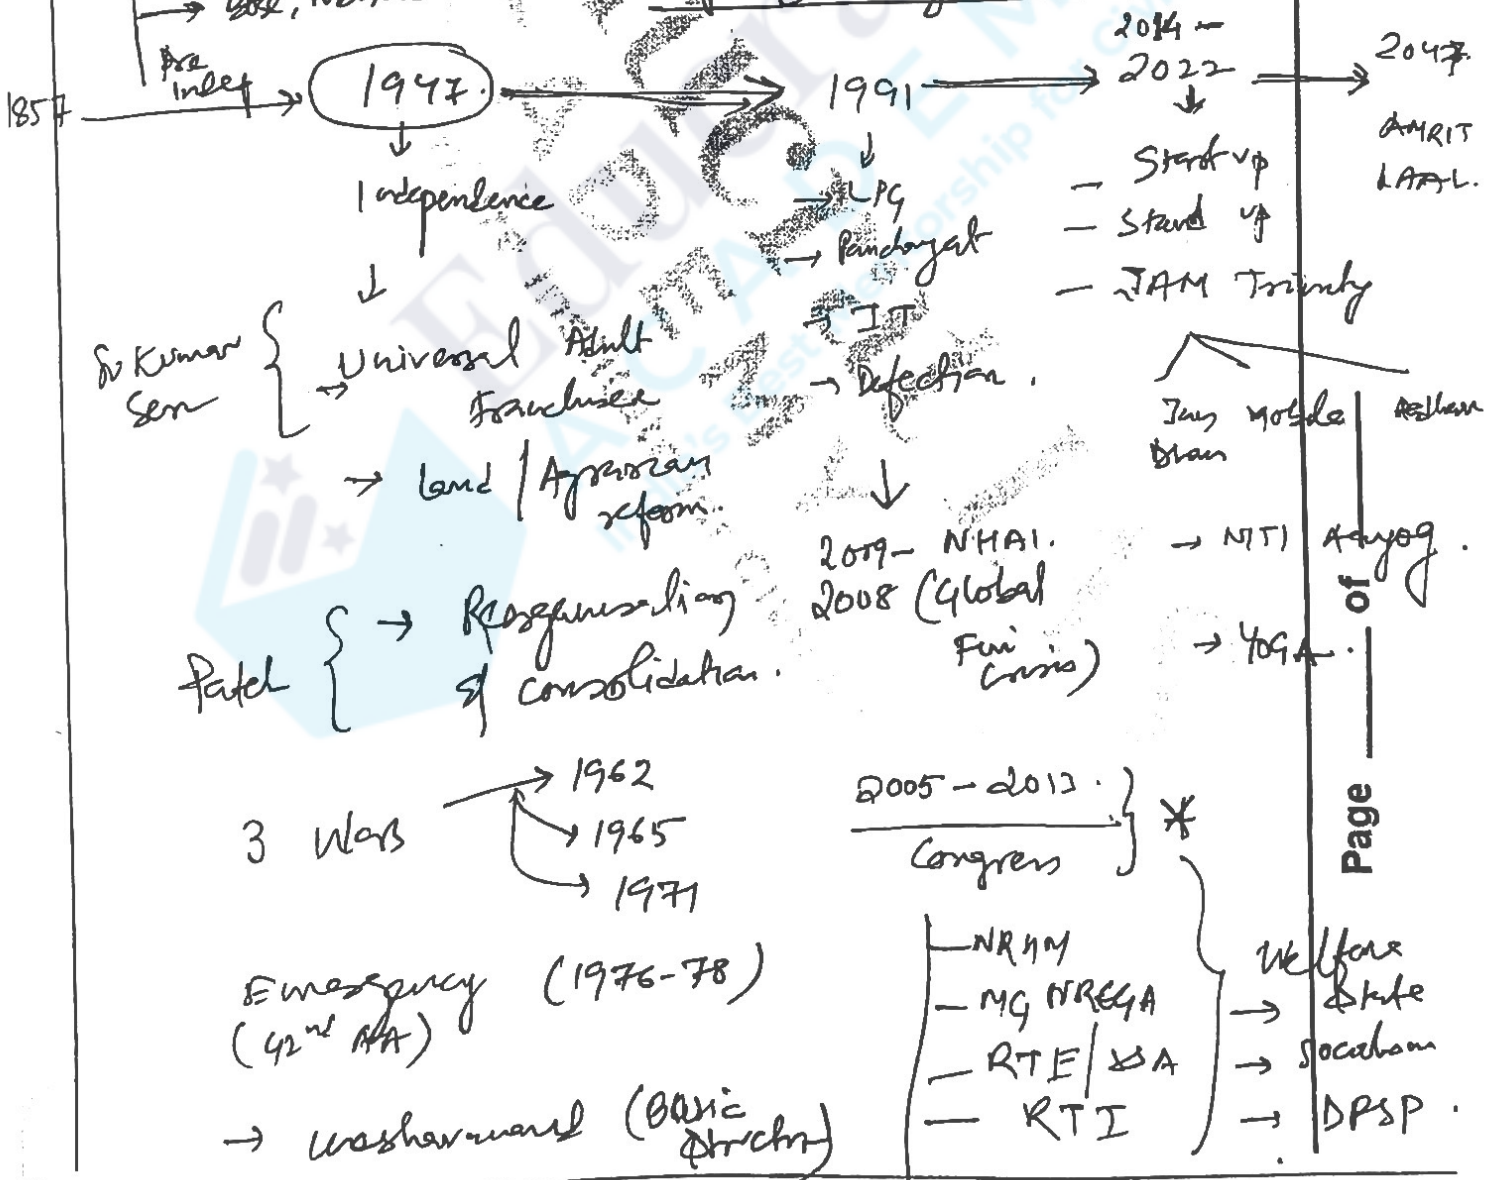 → Bose,
1857
Pre
indep
1947.
1991
2014 -
2022
2047.
AMRIT
KAAL.
↓
Independence
↓
Su Kumar
Sen
→ Universal Adult
Franchisee
→ Land / Agrarian
reform.
Patel
→ Reorganisation
& consolidation.
3 Wars
→ 1962
→ 1965
→ 1971
Emergency (1976-78)
(42nd AA)
→ (Basic
Structure)
↓
→ LPG
→ Panchayat
→ IT
→ Defection.
↓
2009- NHAI.
2008 (Global
Fin
Crisis)
2005-2013.
Congress
*
- NRHM
- MG NREGA
- RTE/SSA
- RTI
Welfare
→ State
→ Socialism
→ DPSP.
↓
- Start up
- Stand up
- JAM Trinity
Jan
Dhan
Mobile
Aadhaar
→ NITI Aayog.
→ YOGA.
Page ____ of ____
Edu
ACADEM
India's Best Mentorship for Civil